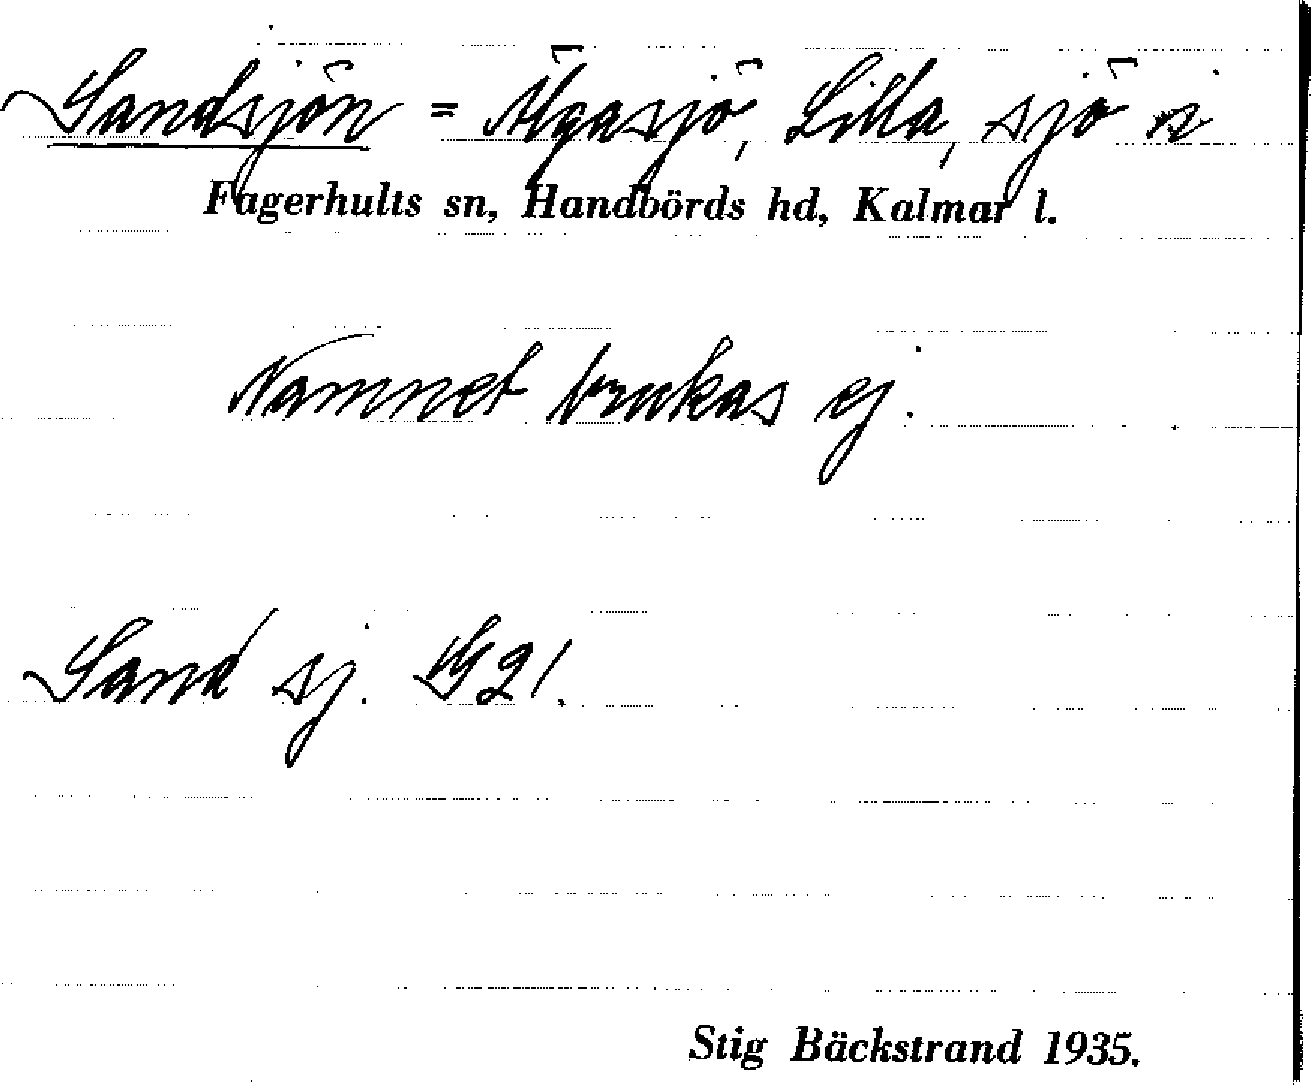 Sandsjön = Älgasjö, Lilla, sjö i
Fagerhults sn, Handbörds hd, Kalmar l.
Namnet brukas ej.
Sand sj. G 21.
Stig Bäckstrand 1935.